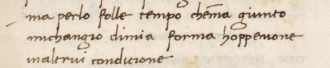 ma perlo folle tempo chema giunto
michangio dimia forma hoppenone
inaltrui condicione